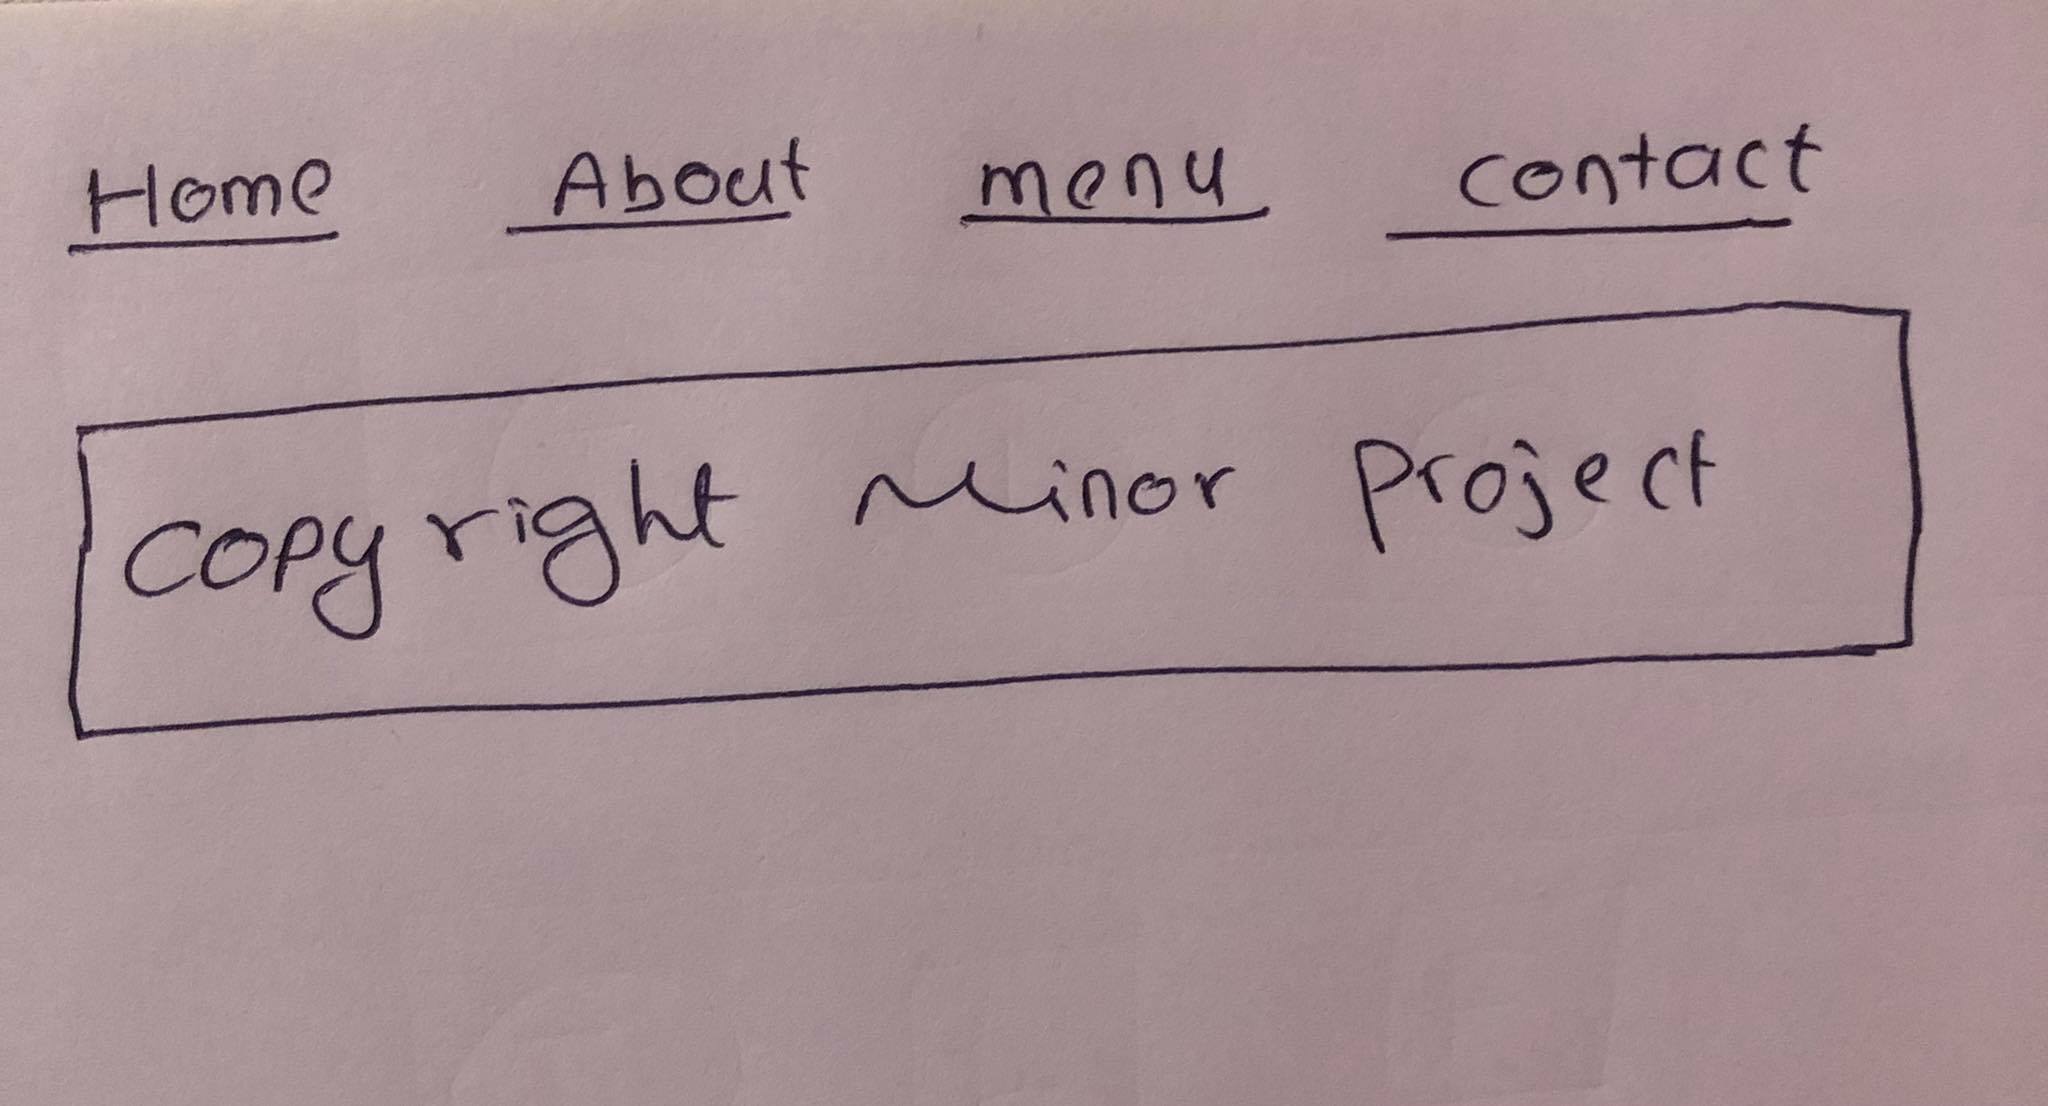 Home About menu contact
Copyright Minor Project